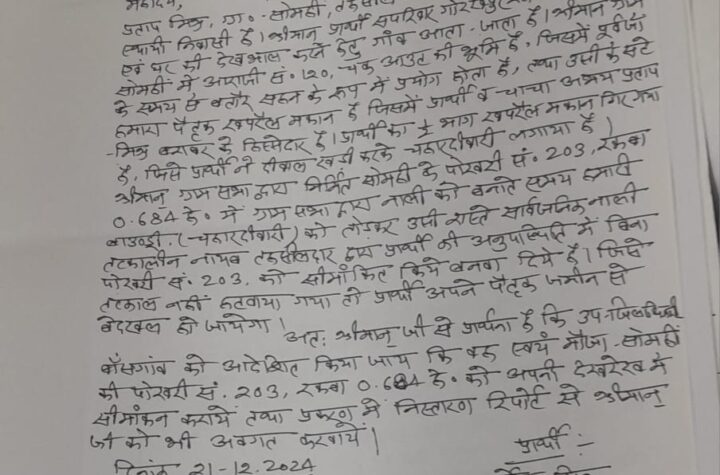 महोदय,
प्रताप मिश्र, ग्रा०-सोमही,
स्थायी निवासी है। श्रीमान् प्रार्थी सपरिवार गोरखपुर
एवं घर की देखभाल करने हेतु गाँव आता-जाता है। श्रीमान् ग्राम
सोमही में आराजी सं० 120, चक आउट की भूमि है, जिसमें पूर्वजों
के समय से बतौर सहन के रूप में प्रयोग होता है, तथा उसी के सटे
हमारा पैतृक खपरैल मकान है जिसमें प्रार्थी व चाचा अभय प्रताप
-मिश्र बराबर के हिस्सेदार है। प्रार्थी का ½ भाग खपरैल मकान गिर गया
है, जिसे प्रार्थी ने दीवाल खड़ी करके चहारदीवारी लगाया है।
श्रीमान् ग्राम सभा द्वारा निर्मित सोमही के पोखरी सं० 203, रकबा
0.684 हे० में ग्राम सभा द्वारा नाली को बनाते समय हमारी
बाउण्ड्री (-चहारदीवारी) को तोड़कर उसी रास्ते सार्वजनिक नाली
तत्कालीन नायब तहसीलदार द्वारा प्रार्थी की अनुपस्थिति में बिना
पोखरी सं० 203, को सीमांकित किये बनवा दिये है। जिसे
तत्काल नहीं हटवाया गया तो प्रार्थी अपने पैतृक जमीन से
बेदखल हो जायेगा।
अतः श्रीमान् जी से प्रार्थना है कि उपजिलाधिकारी
बाँसगांव को आदेशित किया जाय कि वह स्वयं मौजा-सोमही
की पोखरी सं. 203, रकबा 0.684 हे० को अपनी देखरेख में
सीमांकन करायें तथा प्रकरण में निस्तारण रिपोर्ट से श्रीमान्
जी को भी अवगत करवायें।
प्रार्थी :-
दिनांक 21-12.2024